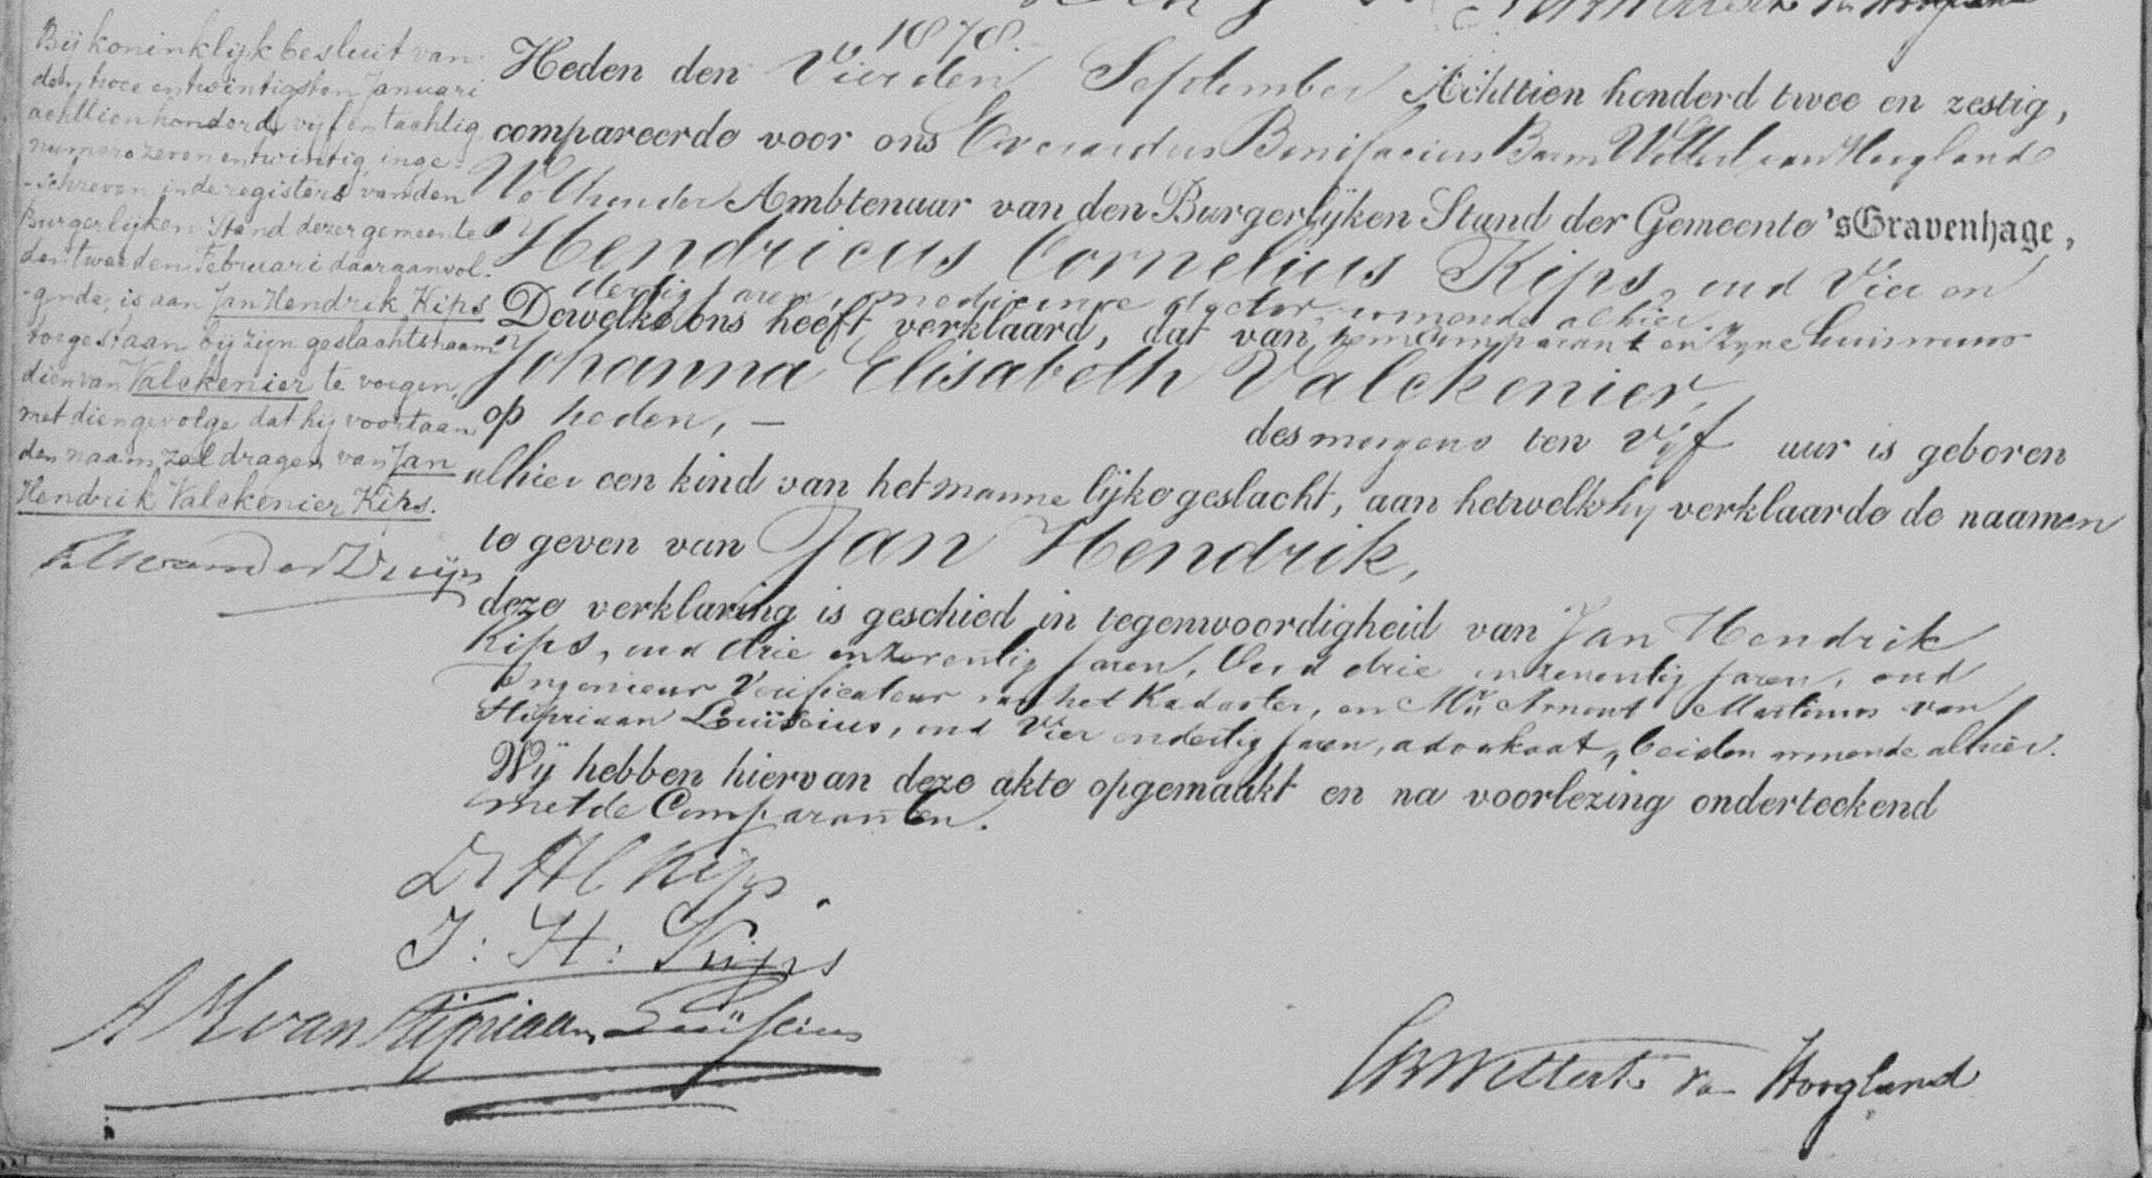 Bij koninklijk besluit van
den twee en twintigsten Januari
achttien honderd vijf en tachtig
numero zeven en twintig, inge-
-schreven in de registers van den
Burgerlijken Stand dezer gemeente
den tweeden Februari daaraanvol-
-gende, is aan Jan Hendrik Kips
toegestaan bij zijn geslachtsnaam
dien van Valckenier te voegen,
met dien gevolge dat hij voortaan
den naam zal dragen van Jan
Hendrik Valckenier Kips.
1878.
Heden den Vierden September Achttien honderd twee en zestig,
compareerde voor ons Everardus Bonifacius Baron Wittert van Hoogland
Wethouder Ambtenaar van den Burgerlijken Stand der Gemeente 'sGravenhage,
Hendricus Cornelius Kips, oud Vier en
dertig jaren, medicinae doctor, wonende alhier.
Dewelke ons heeft verklaard, dat van hem Comparant en zyne huisvrouw
Johanna Elisabeth Valckenier,
op heden, — des morgens ten Vijf uur is geboren
alhier een kind van het mannelijke geslacht, aan hetwelk hy verklaarde de naamen
te geven van Jan Hendrik,
deze verklaring is geschied in tegenwoordigheid van Jan Hendrik
Kips, oud drie en zeventig jaren, oud drie en zeventig jaren, oud
Ingenieur Verificateur van het Kadaster, en Mr Arnout Martinus van
Stipriaan Luïscius, oud Vier en dertig jaren, advokaat, beiden wonende alhier.
Wij hebben hiervan deze akte opgemaakt en na voorlezing onderteekend
met de Comparanten.
Dr H C Kips.
J: H: Kips
A M van Stipriaan Luïscius
EBWittert van Hoogland